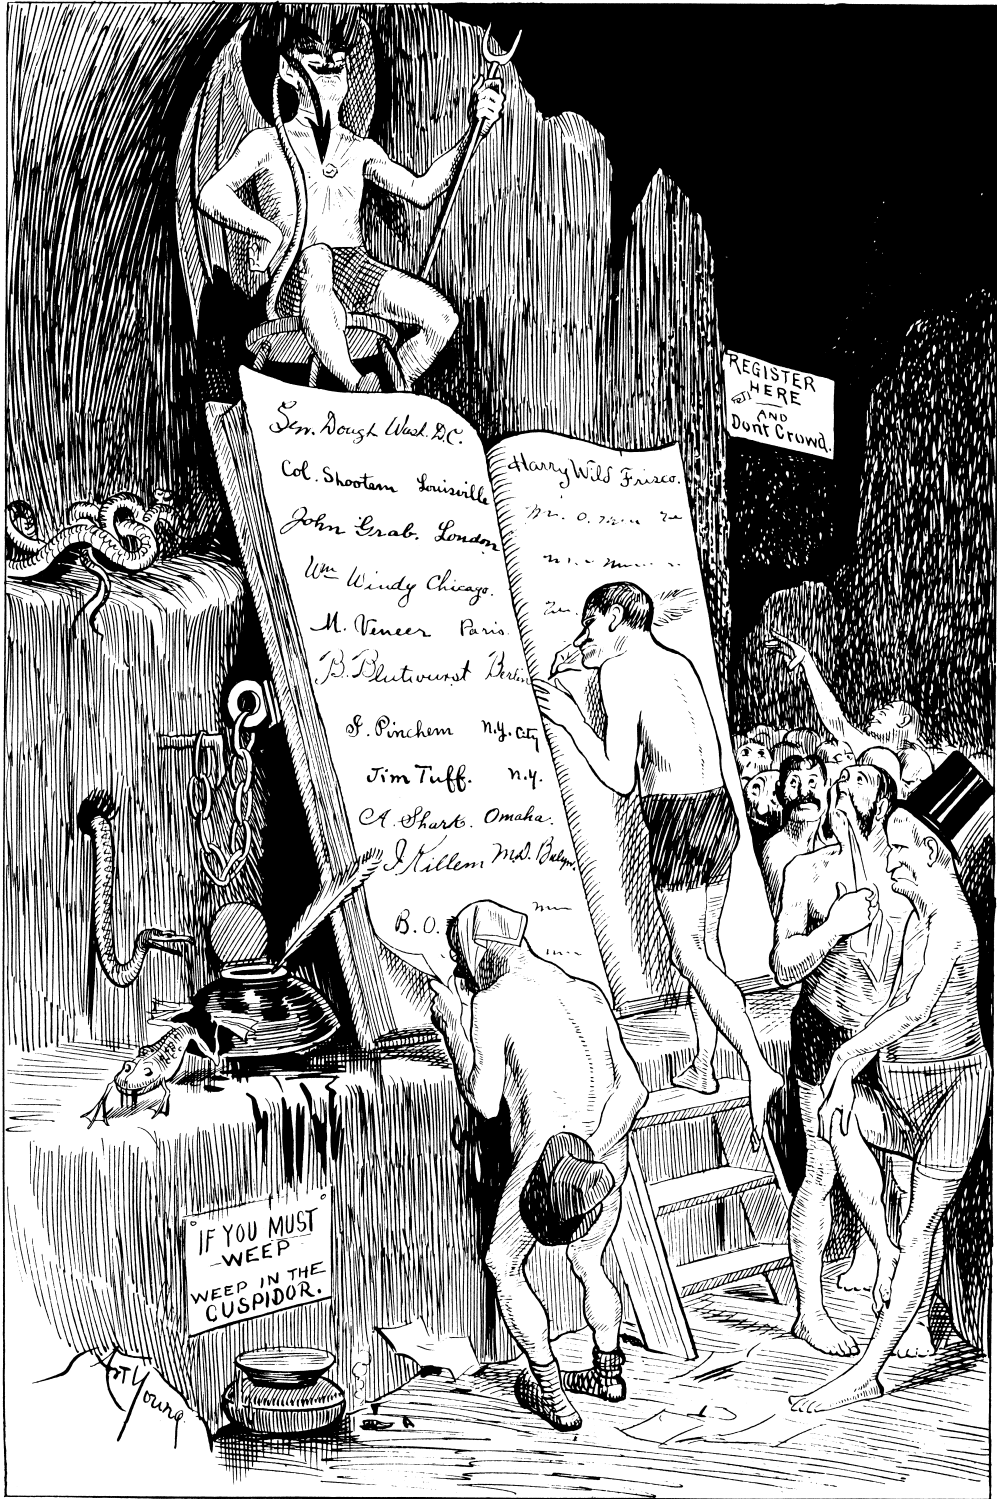 REGISTER
HERE
AND
Dont Crowd.
Sen. Dough Wash. D.C.
Col. Shootem Louisville
John Grab. London
Wm Windy Chicago.
M. Veneer Paris.
B. Blutwurst Berlin
J. Pinchem N.Y. City
Jim Tuff. N.Y.
A. Shark. Omaha.
I Killem M.D. Bklyn.
B. O.
Harry Wild Frisco.
IF YOU MUST
WEEP
WEEP IN THE
CUSPIDOR.
Art Young